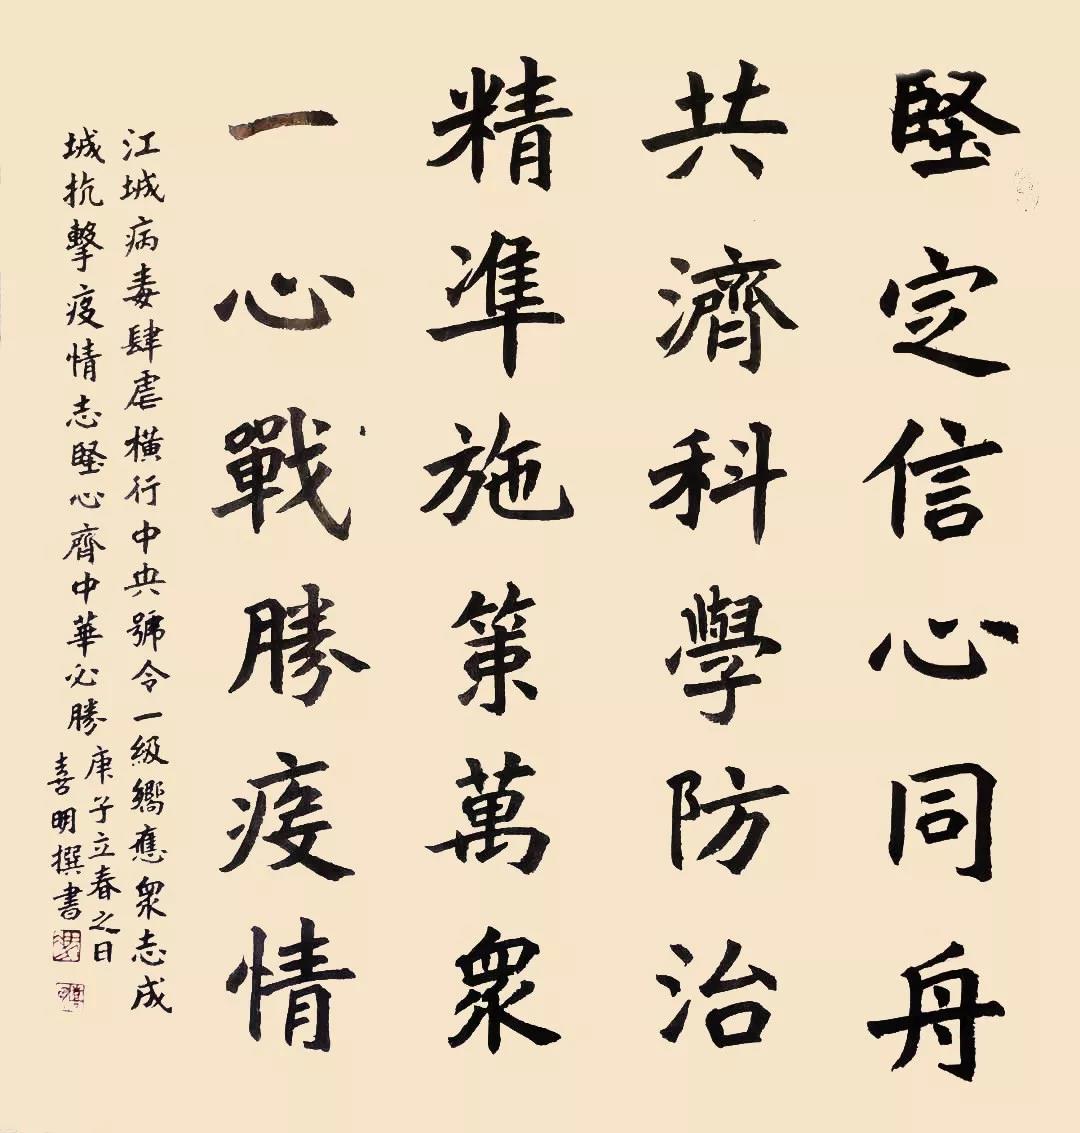 堅定信心同舟
共濟科學防治
精準施策萬衆
一心戰勝疫情
江城病毒肆虐橫行中央號令一級嚮應衆志成
城抗擊疫情志堅心齊中華必勝
庚子立春之日
喜明撰書